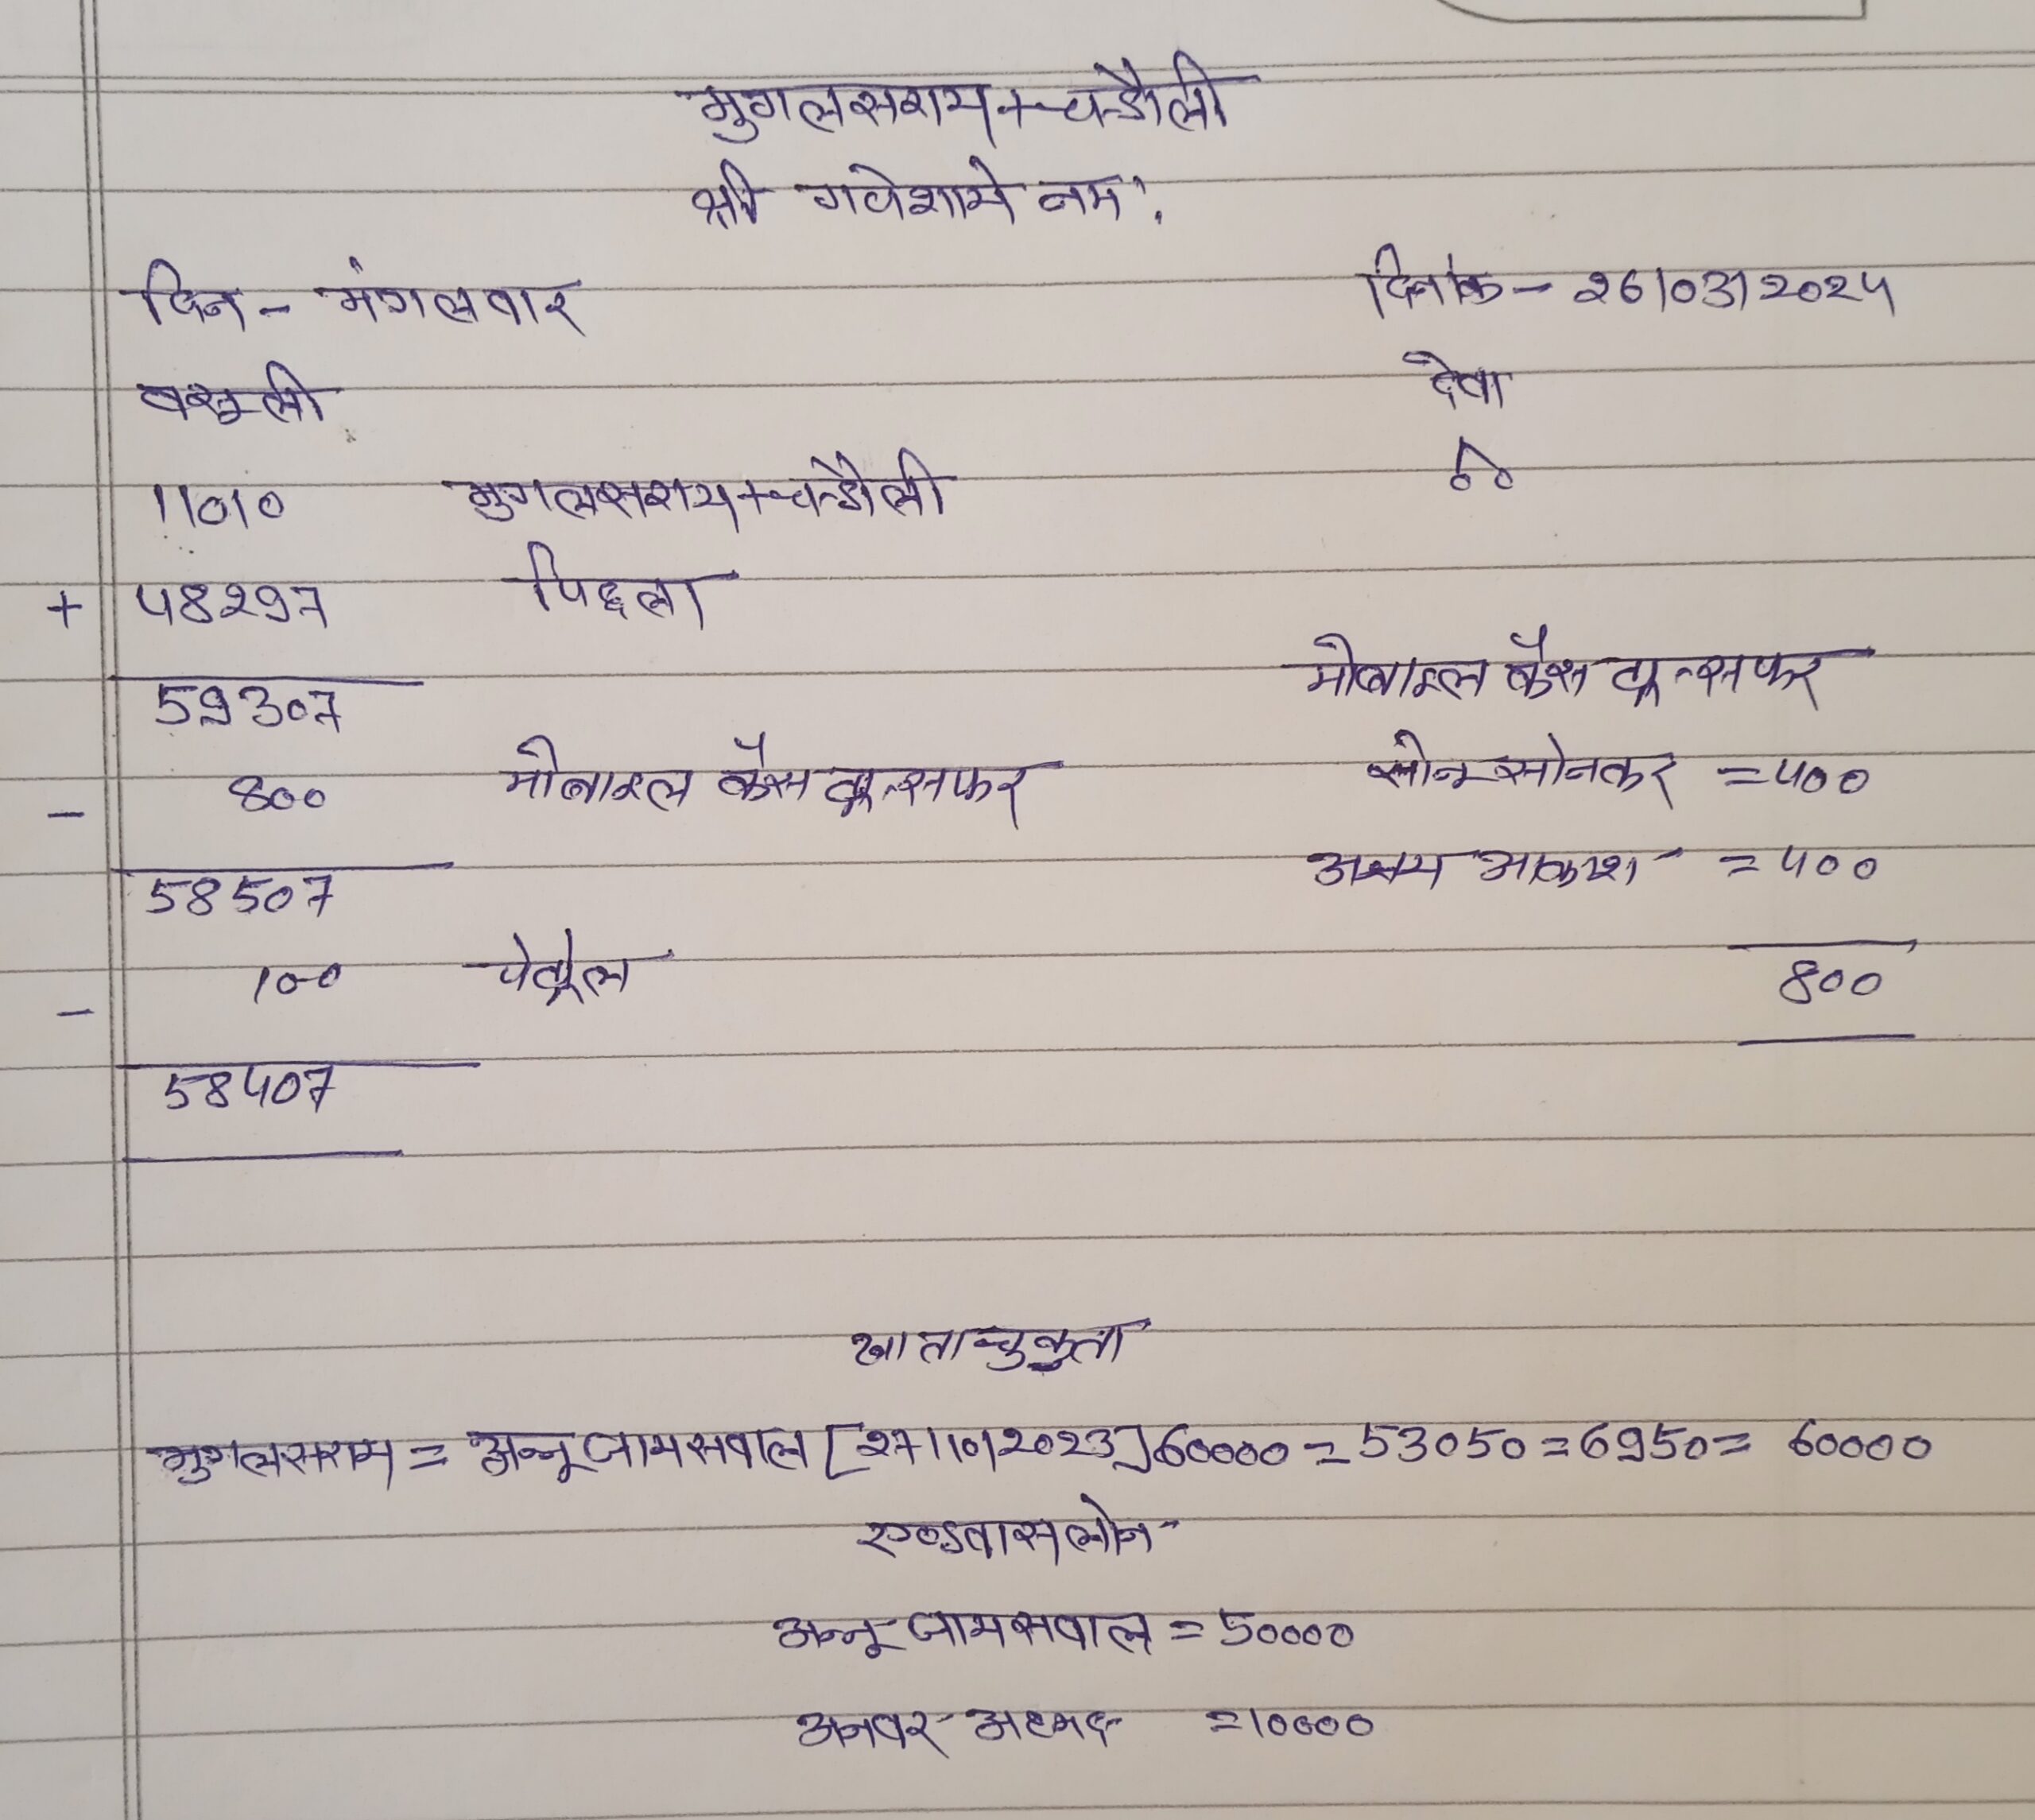 मुगलसराय+चन्डौली
श्री गणेशाये नमः
दिन - मंगलवार दिनांक - 26/03/2024
वसूली देवा
11010 मुगलसराय+चन्डौली 00
+ 48297 पिछला
59307 मोबाइल कैस ट्रान्सफर
- 800 मोबाइल कैस ट्रान्सफर सोनू सोनकर =400
58507 अक्षय आकाश =400
- 100 पेट्रोल 800
58407
खाता चुकुता
मुगलसराय = अन्नू जायसवाल [27/10/2023] 60000 = 53050 = 6950 = 60000
एण्डवास लोन
अन्नू जायसवाल = 50000
अनवर अहमद =10000